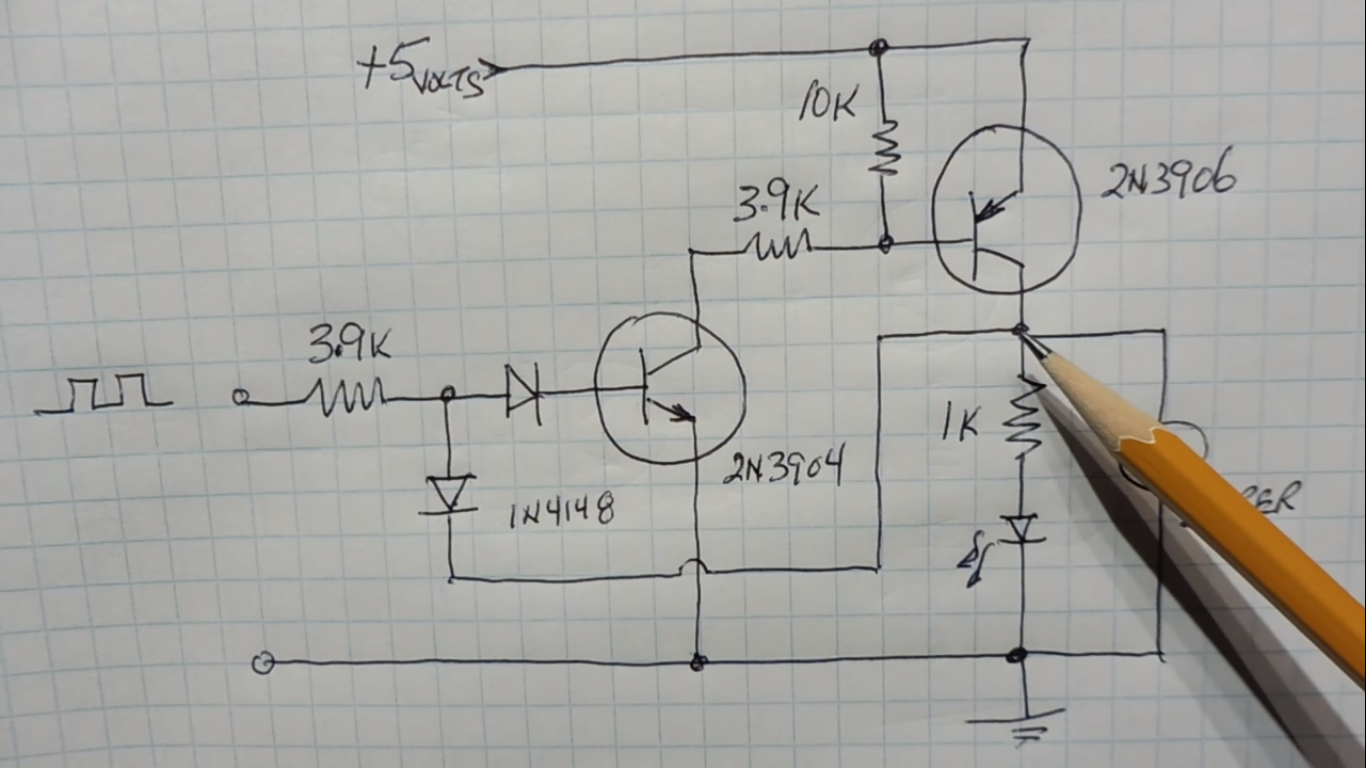 +5VOLTS
10K
2N3906
3.9K
3.9K
1K
2N3904
1N4148